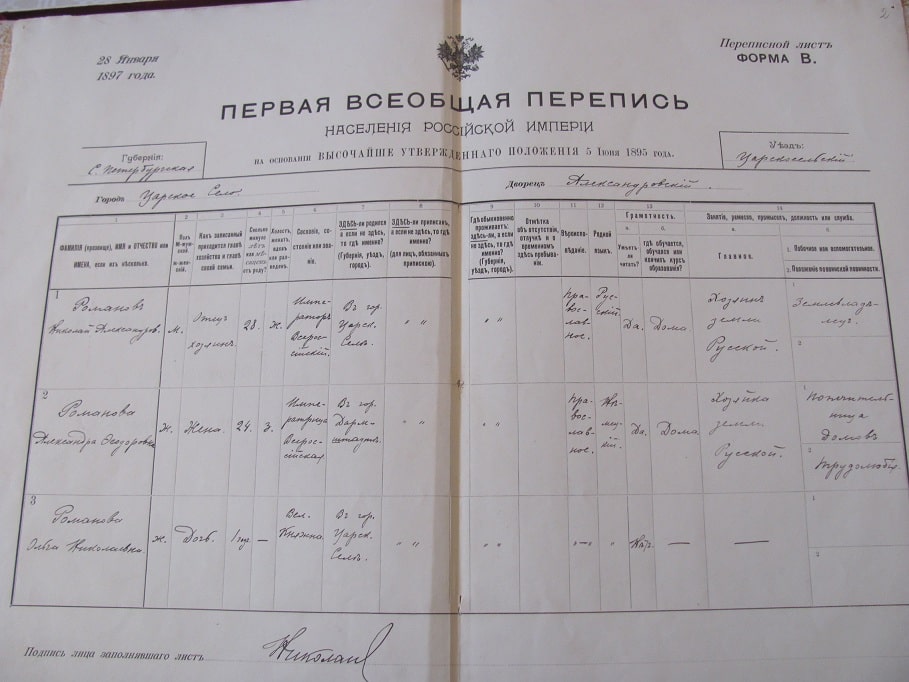 2
28 Января
1897 года.
Переписной листъ
ФОРМА В.
ПЕРВАЯ ВСЕОБЩАЯ ПЕРЕПИСЬ
НАСЕЛЕНІЯ РОССІЙСКОЙ ИМПЕРІИ
НА ОСНОВАНІИ ВЫСОЧАЙШЕ УТВЕРЖДЕННАГО ПОЛОЖЕНІЯ 5 Іюня 1895 года.
Губернія:
С. Петербургская
Уѣздъ:
Царскосельскій.
Городъ Царское Село.
Дворецъ Александровскій.
1
2
3
4
5
6
7
8
9
10
11
12
13
14
ФАМИЛІЯ (прозвище), ИМЯ и ОТЧЕСТВО или
ИМЕНА, если ихъ нѣсколько.
Полъ
М-муж-
ской.
Ж-жен-
скій.
Какъ записанный
приходится главѣ
хозяйства и главѣ
своей семьи.
Сколько
минуло
лѣтъ
или мѣ-
сяцевъ
отъ роду?
Холостъ,
женатъ,
вдовъ
или раз-
веденъ.
Сословіе, со-
стояніе или зва-
ніе.
ЗДѢСЬ-ли родился
а если не здѣсь,
то гдѣ именно?
(Губернія,
уѣздъ, городъ).
ЗДѢСЬ-ли приписанъ,
а если не здѣсь, то гдѣ
именно?
(для лицъ, обязанныхъ
припискою).
Гдѣ обыкновенно
проживаетъ:
здѣсь-ли, а если
не здѣсь, то гдѣ
именно?
(Губернія,
уѣздъ, городъ).
Отмѣтка
объ отсутствіи,
отлучкѣ и о
временномъ
здѣсь пребыва-
ніи.
Вѣроиспо-
вѣданіе.
Родной
языкъ.
Грамотность.
а.
Умѣетъ-
ли
читать?
б.
гдѣ обучается,
обучался или
кончилъ курсъ
образованія?
Занятіе, ремесло, промыселъ, должность или служба.
а.
Главное.
б.
1. Побочное или вспомогательное.
2. Положеніе по воинской повинности.
1
Романовъ
Николай Александров.
м.
Отецъ
хозяинъ.
28.
ж.
Импе-
раторъ
Всерос-
сійскій.
Въ гор.
Царск.
Селѣ.
" "
" "
Пра-
вос-
лав-
ное.
Рус-
скій.
Да.
Дома.
Хозяинъ
земли
Русской.
1
Землевладѣ-
лецъ.
2
2
Романова
Александра Феодоровна
ж.
Жена.
24.
з.
Импе-
ратрица
Всерос-
сійская
Въ гор.
Дарм-
штадтѣ.
" "
" "
Пра-
вос-
лав-
ное.
Нѣ-
мец-
кій.
Да.
Дома
Хозяйка
земли
Русской.
1
Попечитель-
ница
домовъ
2
трудолюбія.
3
Романова
Ольга Николаевна.
ж.
Дочь.
1 г.
—
Вел.
Княжна.
Въ гор.
Царск.
Селѣ.
" "
" "
"—"
"
Нѣт.
—
—
1
2
Подпись лица заполнявшаго листъ
Николай